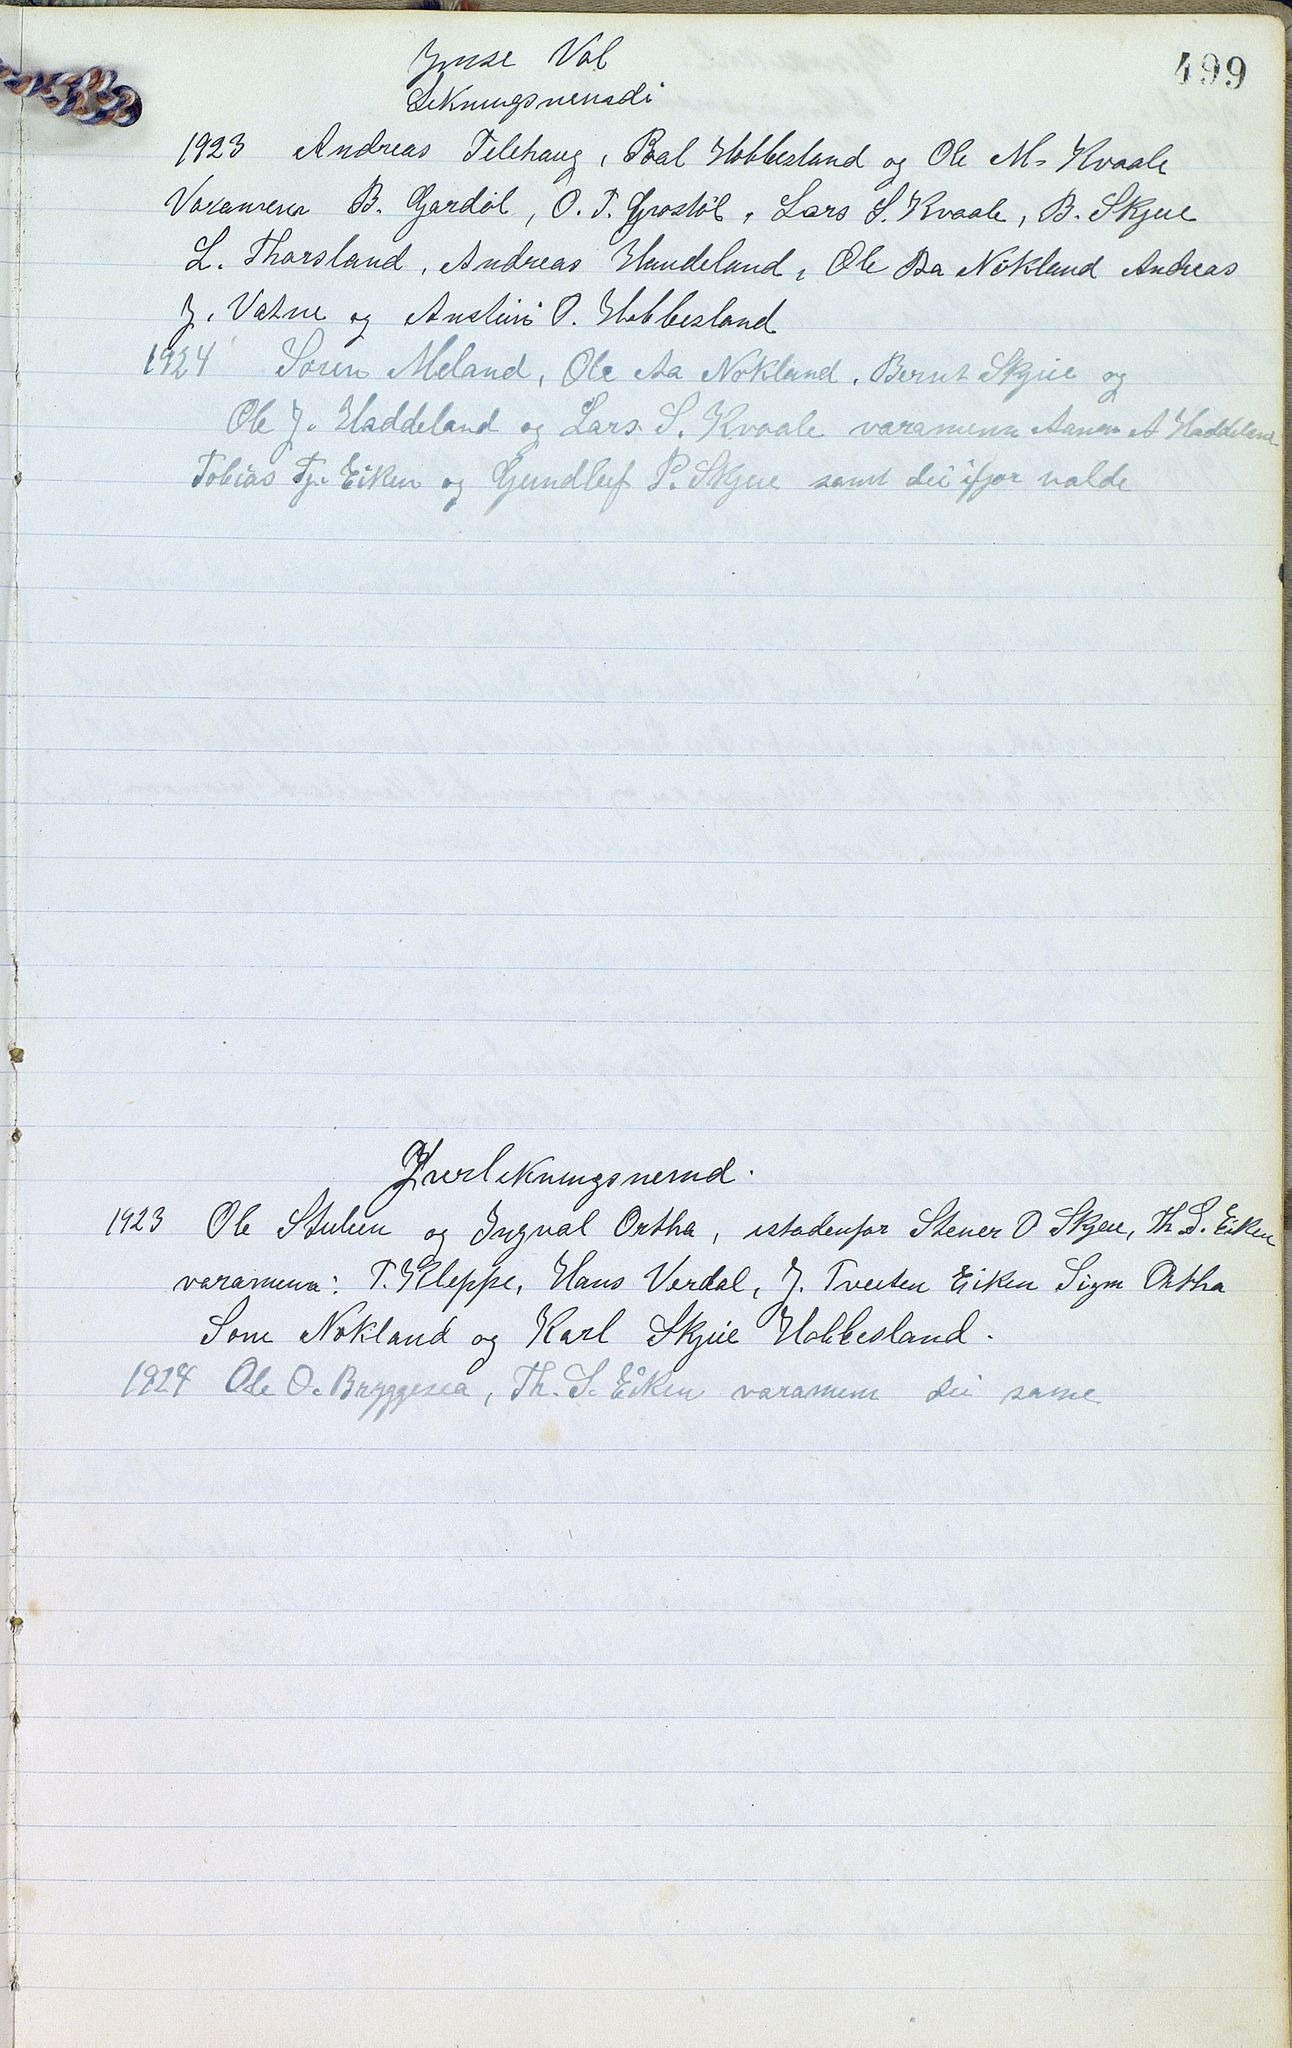 499
Ymse Val
Likningsnemdi
1923 Andreas Telehaug, Paal Hobbesland og Ole M. Kvaale
Varamenn B. Gardöl, O. T. Grostöl, Lars S. Kvaale, B. Skjeie
L. Thorsland, Andreas Haudeland, Ole Aa Nökland Andreas
J. Vatne og Anstein O. Hobbesland
1924 Sören Meland, Ole Aa Nökland, Bernt Skjeie og
Ole J. Haddeland og Lars S. Kvaale varamenn Aanen A Haddeland
Tobias Tj. Eiken og Gundleif P. Skjeie samt dei ifjor valde
Yverlikningsnemd.
1923 Ole Stulien og Ingval Ortha, istadenfor Stener O Skjeie, Th S. Eiken
varamenn: T. Kleppe, Hans Verdal, J. Tveiten Eiken Sigm Ortha
Sörn Nökland og Karl Skjeie Hobbesland.
1924 Ole O. Bryggesea, Th. S. Eiken varamenn dei same